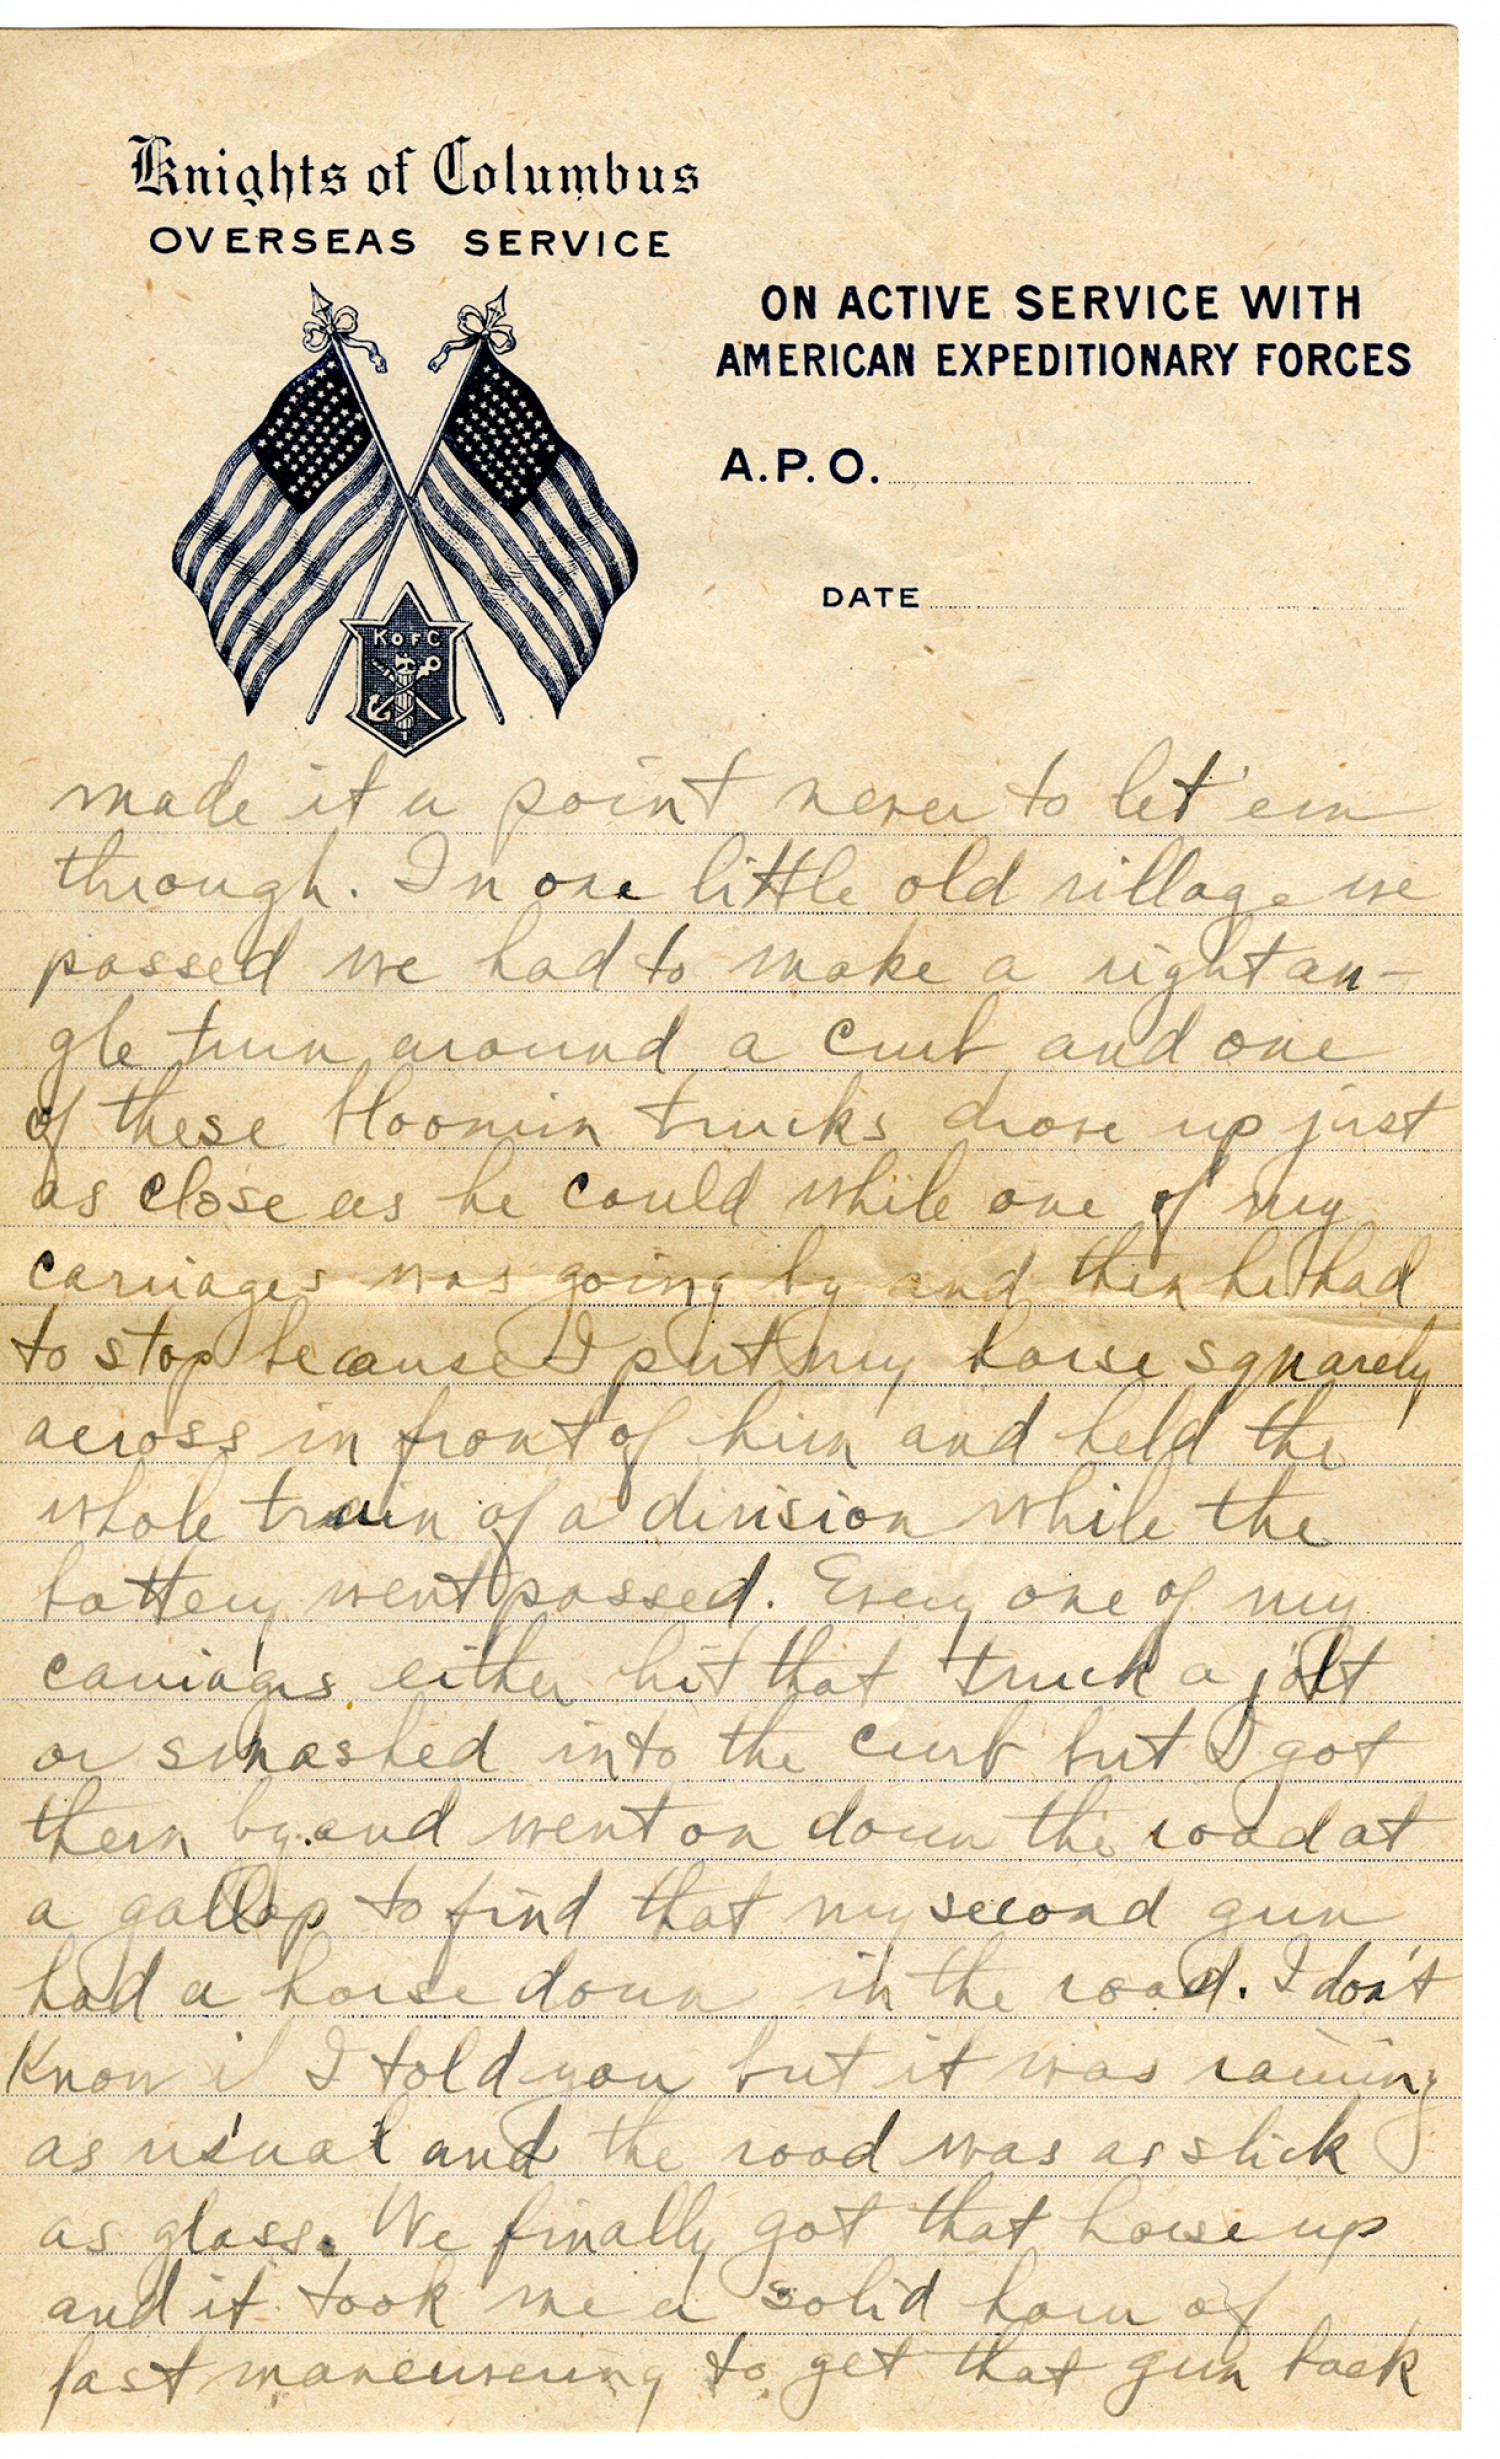 Knights of Columbus
OVERSEAS SERVICE
ON ACTIVE SERVICE WITH
AMERICAN EXPEDITIONARY FORCES
A.P.O.
DATE
K OF C
made it a point never to let 'em
through. In one little old village we
passed we had to make a right an-
gle turn around a curb and one
of these bloomin trucks drove up just
as close as he could while one of my
carriages was going by and then he had
to stop because I put my horse squarely
across in front of him and held the
whole train of a division while the
battery went passed. Every one of my
carriages either hit that truck a jolt
or smashed into the curb but I got
them by and went on down the road at
a gallop to find that my second gun
had a horse down in the road. I don't
know if I told you but it was raining
as usual and the road was as slick
as glass. We finally got that horse up
and it took me a solid hour of
fast maneuvering to get that gun back